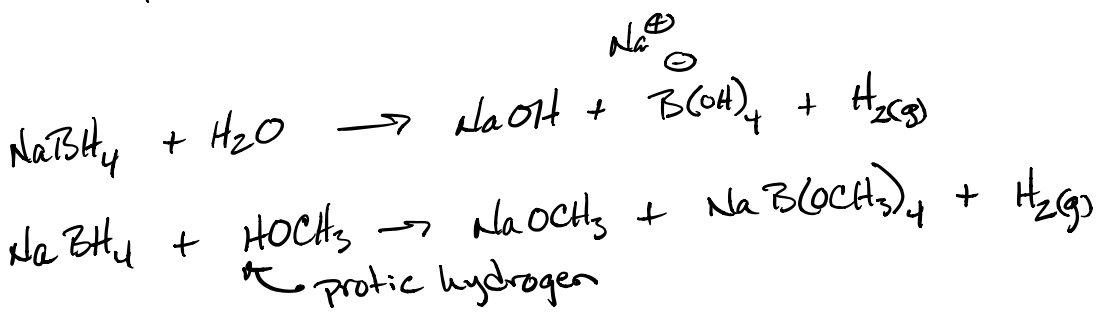 Na⊕ ⊖
NaBH₄ + H₂O → NaOH + B(OH)₄ + H₂(g)
NaBH₄ + HOCH₃ → NaOCH₃ + NaB(OCH₃)₄ + H₂(g)
protic hydrogen